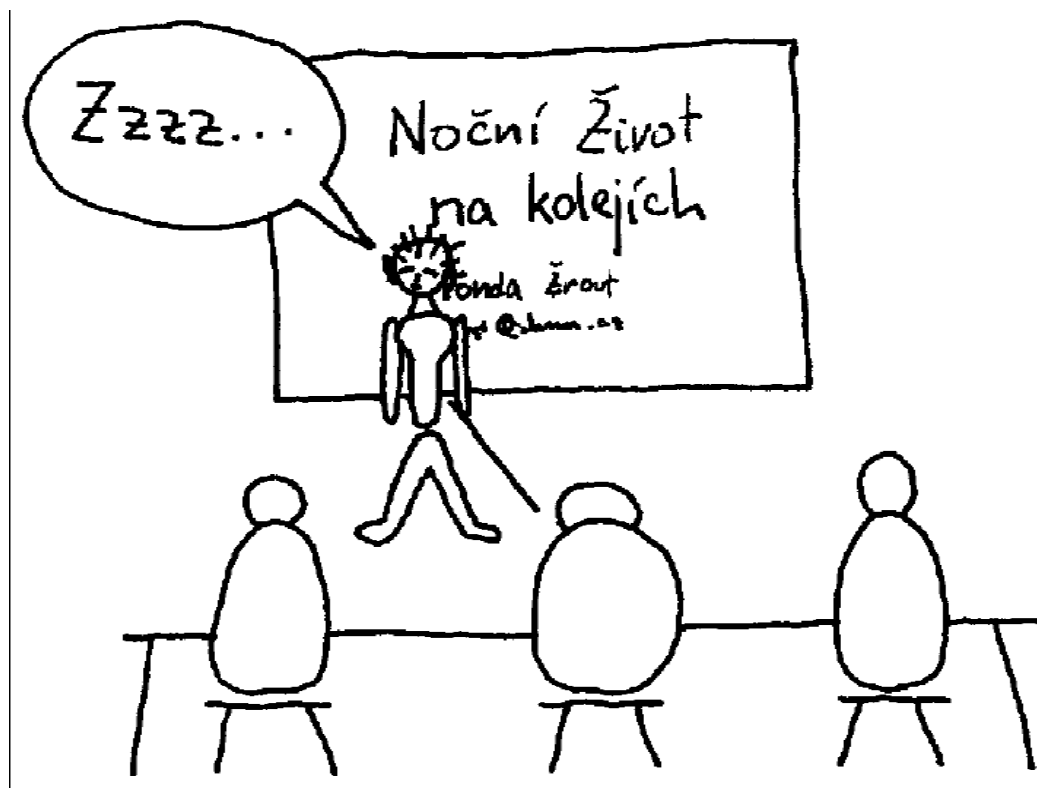 Zzzz...
Noční Život
na kolejích
onda Žrout